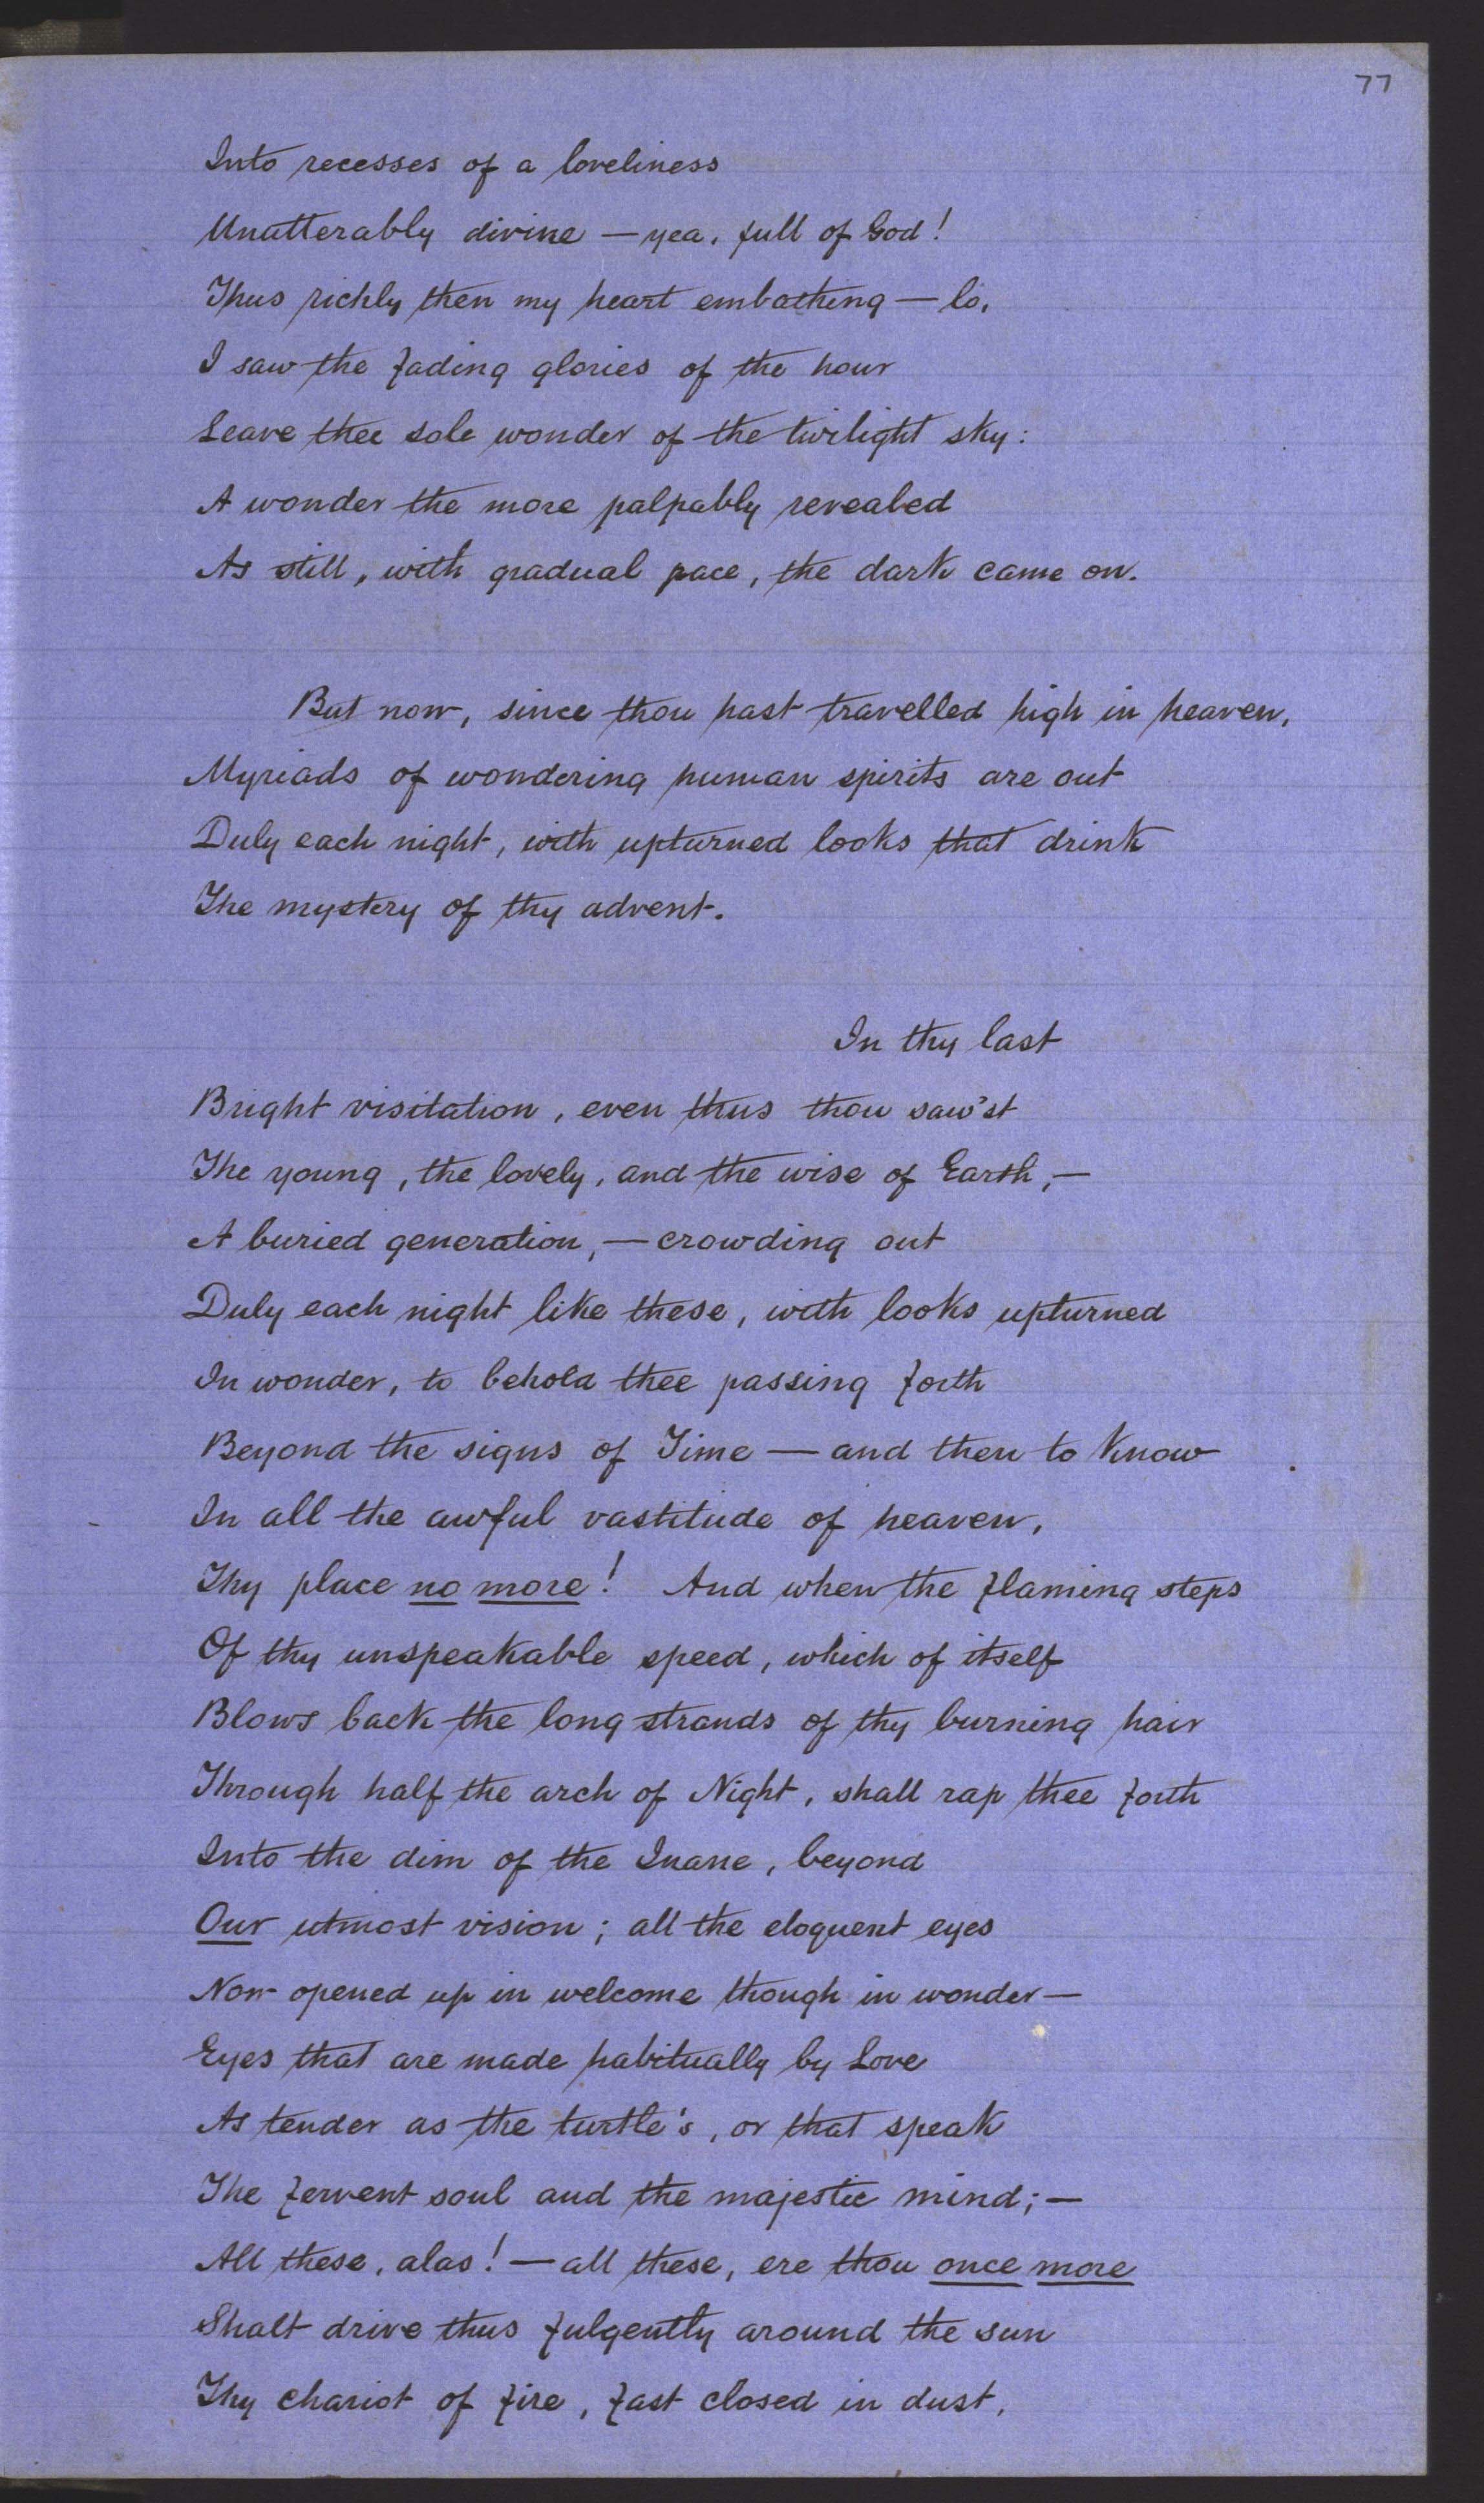 77
Into recesses of a loveliness
Unutterably divine — yea, full of God!
Thus richly then my heart embathing — lo,
I saw the fading glories of the hour
Leave thee sole wonder of the twilight sky:
A wonder the more palpably revealed
As still, with gradual pace, the dark came on.
But now, since thou hast travelled high in heaven,
Myriads of wondering human spirits are out
Duly each night, with upturned looks that drink
The mystery of thy advent.
In thy last
Bright visitation, even thus thou saw'st
The young, the lovely, and the wise of Earth,—
A buried generation,—crowding out
Duly each night like these, with looks upturned
In wonder, to behold thee passing forth
Beyond the signs of Time — and then to know
In all the awful vastitude of heaven,
Thy place no more! And when the flaming steps
Of thy unspeakable speed, which of itself
Blows back the long strands of thy burning hair
Through half the arch of Night, shall rap thee forth
Into the dim of the Inane, beyond
Our utmost vision; all the eloquent eyes
Now opened up in welcome though in wonder—
Eyes that are made habitually by Love
As tender as the turtle's, or that speak
The fervent soul and the majestic mind;—
All these, alas!—all these, ere thou once more
Shalt drive thus fulgently around the sun
Thy chariot of fire, fast closed in dust,